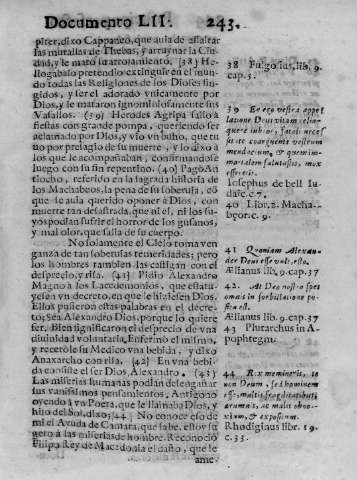 Documento LII. 243.
piter, dixo Cappaneo, que auia de assaltar
las murallas de Thebas, y arruynar la Ciu-
dad, y le mató su arrojamiento. [38] He-
liogabalo pretendió extinguir en el mun-
do todas las Religiones de los Dioses fin-
gidos, y ser el adorado vnicamente por
Dios, y le mataron ignominiosamente sus
Vasallos. (39) Herodes Agripa salió a
fiestas con grande pompa, queriendo ser
aclamado por Dios, y vió vn buho, que tu
uo por presagio de su muerte, y lo dixo a
los que le acompañaban, confirmandose
luego con su fin repentino. (40) Pagó An
tiocho, referido en la sagrada historia de
los Machabeos, la pena de su soberuia, có
que se auia querido oponer a Dios, con
muerte tan desastrada, que ni el, ni los su-
yos podian sufrir el horror de los gusanos,
y mal olor, que salia de su cuerpo.
No solamente el Cielo toma ven
ganza de tan soberuias temeridades; pero
los hombres tambien las castigan con el
desprecio, y risa. (41) Pidio Alexandro
Magno a los Lacedemonios, que estatu-
yesen vn decreto, en que le hiziesen Dios.
Ellos pusieron estas palabras en el decre-
to; sea Alexandro Dios, porque lo quiere
ser. Bien significaron el desprecio de vna
diuinidad voluntaria. Enfermó el mismo,
y recetole su Medico vna bebida, y dixo
Anaxarcho con risa. (42) En vna bebi-
da consiste el ser Dios, Alexandro. (43)
Las miserias humanas podian desengañar
sus vanissimos pensamientos, Antigono
oyendo à vn Poeta, que le llamaba Dios, y
hijo del Sol, dixo; (44) No conoce esso de
mi el Ayuda de Camara, que sabe, estoy su
geto à las miserias de hombre. Reconocio
Filipo Rey de Macedonia el daño, que le
ame-
38 Fulgosius, lib. 9.
cap. 5.
39
Iosephus de bell Iu-
daic. c. 7.
40 Libr. 2. Macha-
bęor. c. 9.
41 Quoniam Alexan-
der Deus esse vult, esto.
Ælianus lib. 9. cap. 37
42. At Deo nostro spes
omnis in sorbitiatione po-
sita est.
Ælianus lib. 9. cap. 37
43 Plutarchus in A-
pophtegm.
Rhodiginus libr. 19.
c. 33.